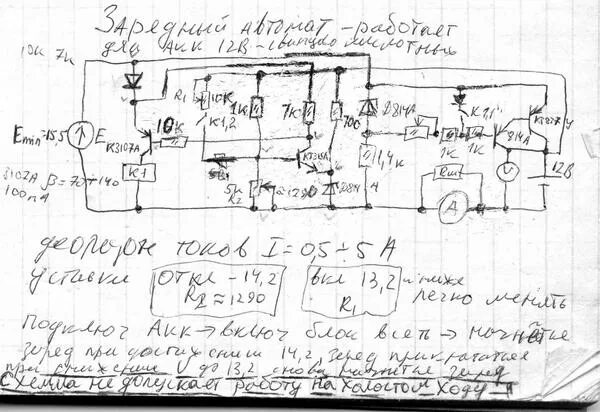 Зарядный автомат - работает
для Акк 12В - свинцово кислотных
10к 7к
R1 10к
К1,2
1к
7к
700
Д814А
К1,1
КТ827
У
Emin-15,5
E
КТ3107А
10к
КТ315А
1,4к
1к
1к
814А
3102А β=70÷140
100mA
К1
5к
R2
≈1290
Д814
Rш
А
V
12В
диапазон токов I=0,5÷5 А
уставки
откл -14,2
R2≈1290
вкл 13,2
R1
и ниже
легко менять
Подключ Акк → включ блок в сеть → начнётся
заряд при достижении 14,2, заряд прекратится
при снижении U до 13,2 снова начнётся заряд
Схема не допускает работу на холостом ходу - !!